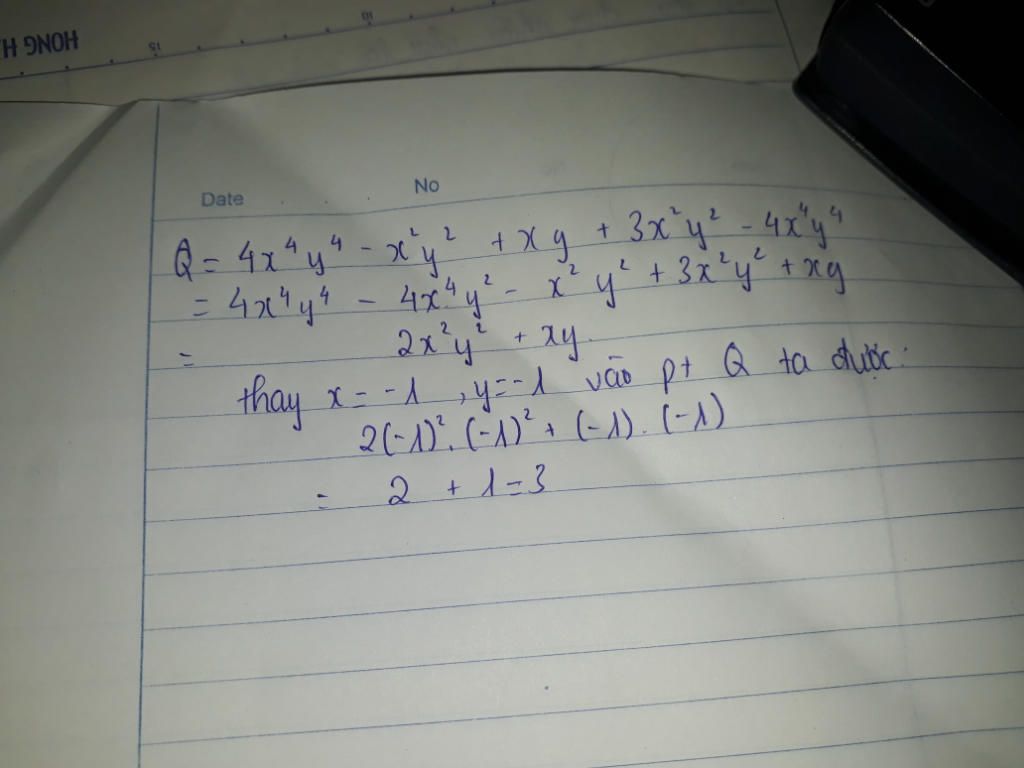 HONG H
15
10
Date No
Q = 4x⁴y⁴ - x²y² + xy + 3x²y² - 4x⁴y⁴
= 4x⁴y⁴ - 4x⁴y² - x²y² + 3x²y² + xy
= 2x²y² + xy.
thay x = -1, y = -1 vào pt Q ta được:
2(-1)².(-1)² + (-1).(-1)
= 2 + 1 = 3